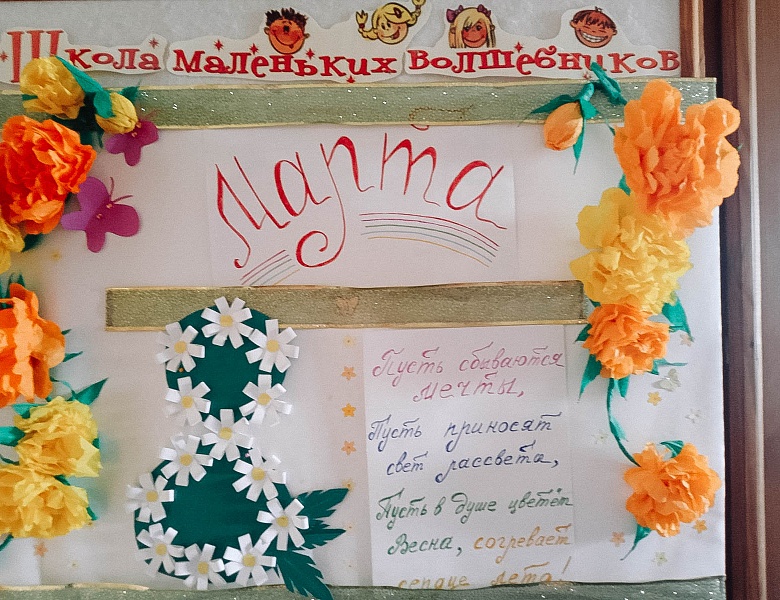 Школа маленьких волшебников
Марта
8
Пусть сбываются
мечты,
Пусть приносят
свет рассвета,
Пусть в душе цветёт
Весна, согревает
сердце лета!